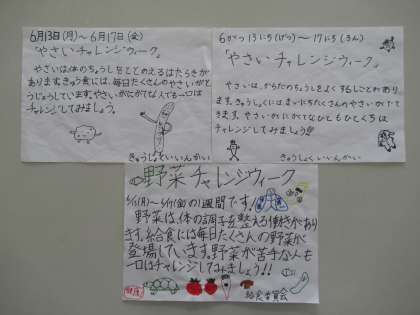 6月13日(月)~6月17日(金)
「やさいチャレンジウィーク」
やさいは体のちょうしをととのえるはたらきが
あります。きゅう食には、毎日たくさんのやさいがと
うじょうしています。やさいがにがてな人でも一口は
チャレンジしてみましょう。
きゅうしょくいいんかい
6がつ13にち(げつ)~17にち(きん)
「やさいチャレンジウィーク」
やさいは、からだのちょうしをよくするしごとがあり
ます。きゅうしょくにはまいにちたくさんのやさいがでて
きます。やさいがにがてなひともひとくちは
チャレンジしてみましょう!!
きゅうしょくいいんかい
野菜チャレンジウィーク
6/13(月)~6/17(金)の1週間です!
野菜は、体の調子を整える働きがあり
ます。給食には毎日たくさんの野菜が
登場しています。野菜が苦手な人も
一口はチャレンジしてみましょう!!
給食委員会